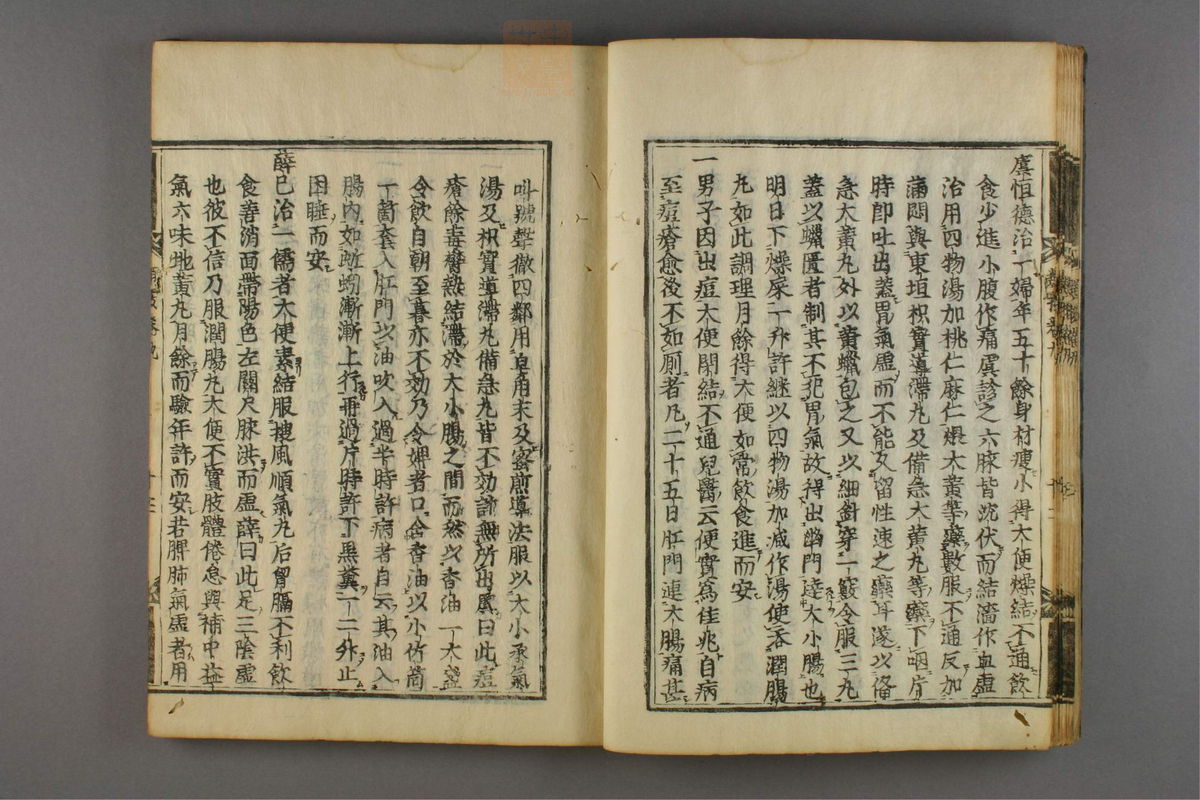 虞恒德治一婦年五十餘身材瘦小得大便燥結不通飲
食少進小腹作痛虞診之六脉皆沈伏而結濇作血虛
治用四物湯加桃仁麻仁煨大黄等藥數服不通反加
滿悶與東垣枳實導滯丸及備急大黄丸等藥下咽片
時即吐出蓋胃氣虛而不能久留性速之藥耳遂以俻
急大黄丸外以黄蠟包之又以細針穿一竅令服三丸
蓋以蠟匱者制其不犯胃氣故得出幽門達大小腸也
明日下燥屎一升許継以四物湯加减作湯使吞潤腸
丸如此調理月餘得大便如常飲食進而安
一男子因出痘大便閉結不通兒醫云便實爲佳兆自病
至痘瘡愈後不如厠者凡二十五日肛門連大腸痛甚
叫號聲徹四鄰用皂角末及蜜煎導法服以大小承氣
湯及枳實導滯丸備急丸皆不効計無所出虞曰此痘
瘡餘毒欝熱結滯於大小腸之間而然以香油一大盞
令飲自朝至暮亦不効乃令婢者口含香油以小竹筒
一箇套入肛門以油吹入過半時許病者自云其油入
腸内如蚯蚓漸漸上行再過片時許下黒糞一二升止
困睡而安
薛已治一儒者大便素結服搜風順氣丸后胷膈不利飲
食善消面帶陽色左關尺脉洪而虛薛曰此足三陰虛
也彼不信乃服潤腸丸大便不實肢體倦怠與補中益
氣六味地黄丸月餘而驗年許而安若脾肺氣虛者用